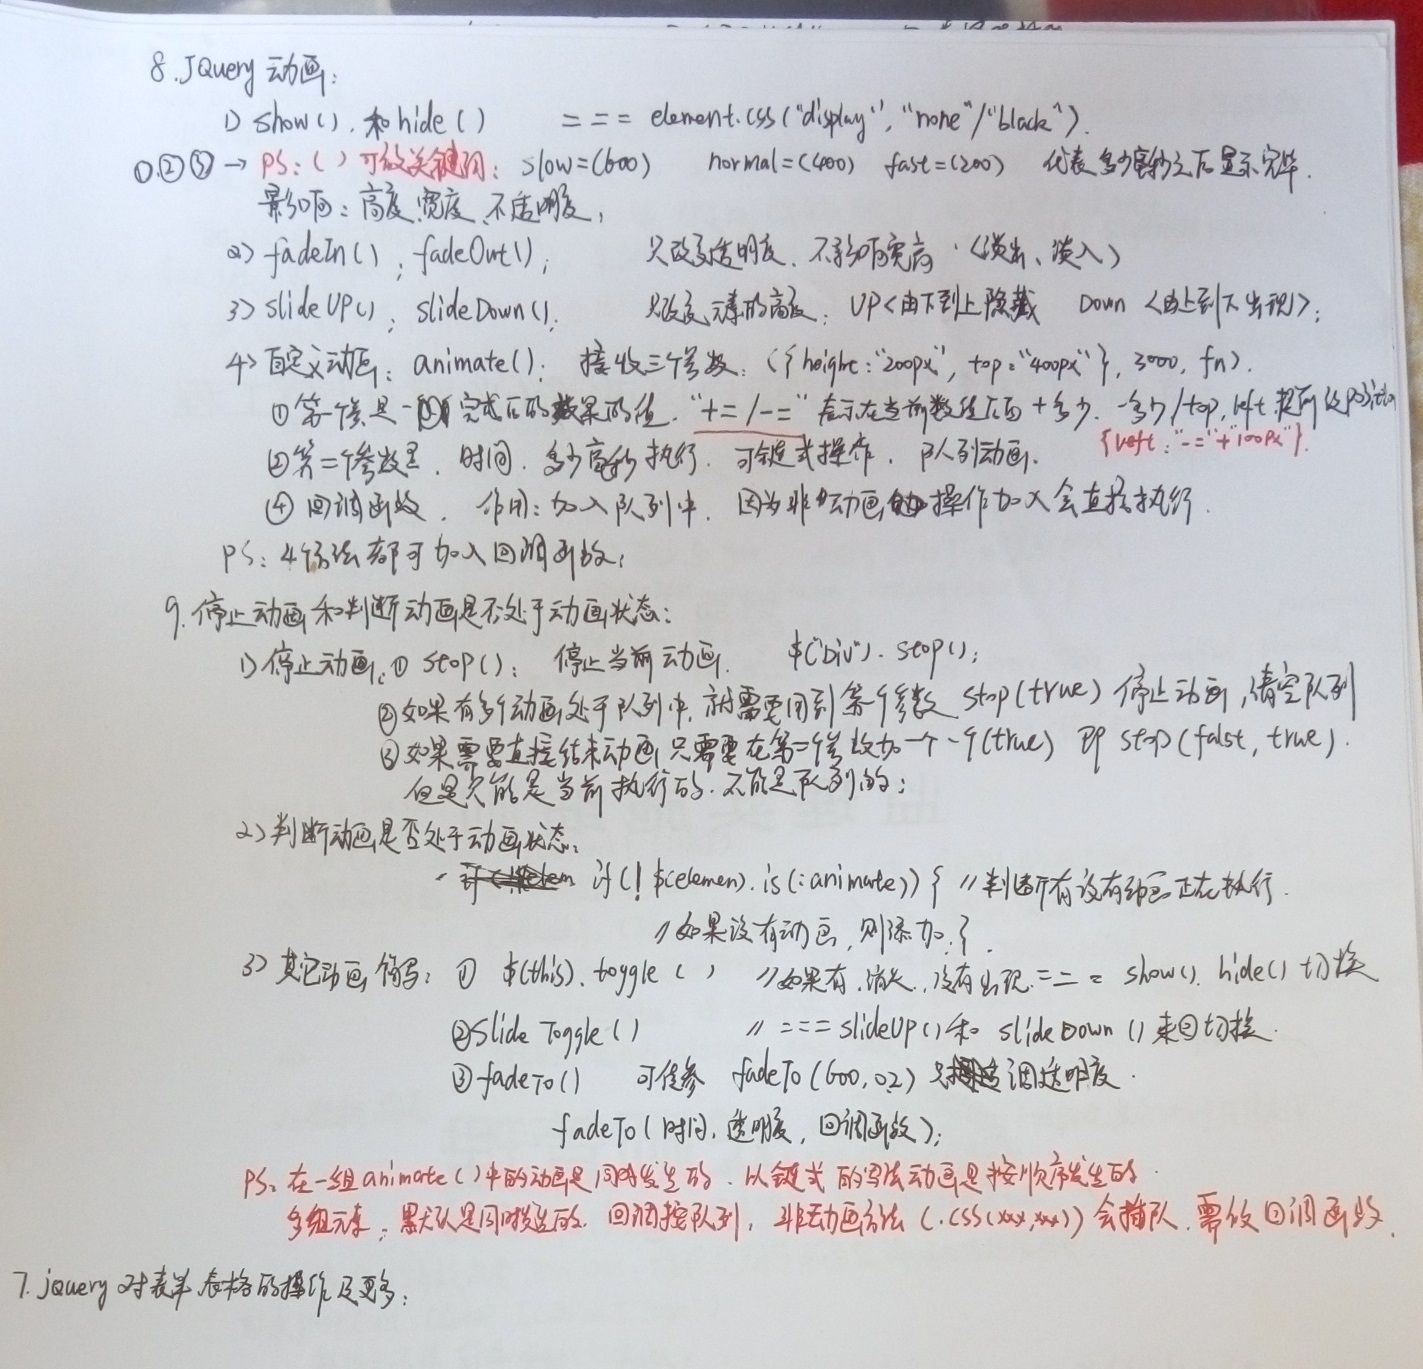 8.JQuery 动画:
1) show(). 和 hide() === element.css("display", "none"/"black").
①②③ → PS:() 可放关键词: slow=(600) normal=(400) fast=(200) 代表多少毫秒之后显示完毕.
影响: 高度、宽度、不透明度;
2) fadeIn(); fadeOut(); 只改变透明度、不影响宽高.〈淡出、淡入〉
3) slideUP(); slideDown(); 只改变元素的高度; UP〈由下到上隐藏 Down〈由上到下出现〉;
4) 自定义动画: animate(); 接收三个参数: ({height:"200px", top:"400px"}, 3000, fn).
① 第一个参是一 完成后的效果的值. "+=/-=" 表示在当前数值后面+多少. -多少/top, left 提前设position
{left:"-="+"100px"}.
②第二个参数是, 时间. 多少毫秒执行. 可链式操作. 队列动画.
④ 回调函数. 作用: 加入队列中. 因为非动画的操作加入会直接执行.
PS: 4个方法都可加入回调函数;
9. 停止动画和判断动画是否处于动画状态:
1) 停止动画: ① stop(); 停止当前动画. $("Div").stop();
②如果有多个动画处于队列中, 就需要用到第一个参数 stop(true) 停止动画, 清空队列
③如果需要直接结束动画只需要在第二个参数加一个(true) 即 stop(false, true).
但是只能是当前执行的. 不能是队列的;
2) 判断动画是否处于动画状态:
if(! $(elemen).is(:animate)) { //判断有没有动画正在执行.
//如果没有动画, 则添加;}.
3) 其它动画简写: ① $(this).toggle() //如果有.消失, 没有出现 === show(). hide() 切换
②Slide Toggle() // === slideUp() 和 slideDown() 来回切换.
③fadeTo() 可传参 fadeTo(600,0.2) 只 调透明度.
fadeTo(时间, 透明度, 回调函数);
PS: 在一组animate()中的动画是同时发生的. 以链式的写法动画是按顺序发生的.
多组元素: 默认是同时发送的. 回调按队列, 非动画方法(.css(xx,xx)) 会插队, 需放回调函数.
7. jquery 对表单、表格的操作及更多: